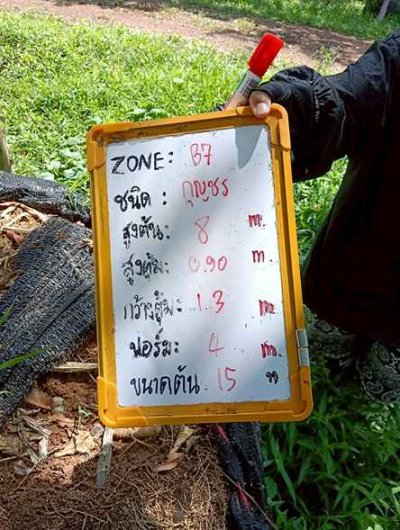 ZONE: B7
ชนิด: กุญชร
สูงต้น: 8 m.
สูงตุ้ม: 0.90 m.
กว้างตุ้ม: 1.3 m.
ฟอร์ม: 4 m.
ขนาดต้น 15 "